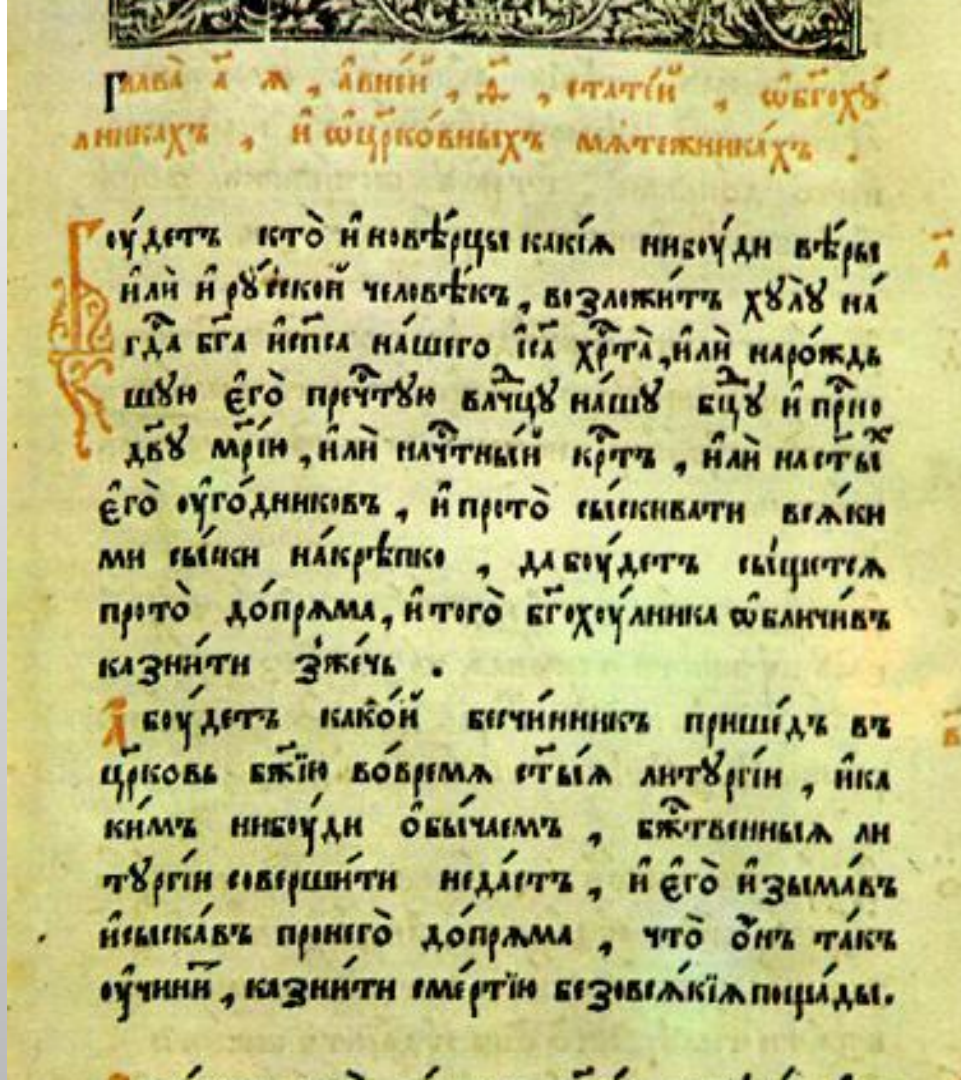 Глава̀ а҃ ѧ , а҆внє́й , д҃ , статє́й , ѡ҆бг҃охꙋ́
лникахъ , и҆ ѡ҆цр҃ко́вныхъ мѧтежника́хъ .
Боу́детъ кто̀ и҆новѣ́рцы какі́ѧ нибоу́ди вѣ́ры
и҆лѝ и҆ рꙋ́ской человѣ́къ , возложи́тъ хꙋлꙋ̀ на́
гд҇а бг҃а и҆сп҃са на́шего і҆с҃а хрⷭ҇та̀ , и҆лѝ наро́ждь
шꙋю є҆го̀ преч҇тꙋю влⷣчцꙋ на́шꙋ бцⷣꙋ и҆ прⷭ҇но
дв҃ꙋ мр҃і́ю , и҆лѝ нач҇тны́й крⷭ҇тъ , и҆лѝ наст҃ыⷯ
є҆го̀ оу҆го́дниковъ , и҆ прото̀ сы́скивати всѧ́ки
ми сы́ски на́крѣпко , дабоу́детъ сы́щетсѧ
прото̀ до́прѧма , и҆того̀ бг҃охоу́лника ѡ҆бличи́въ
казни́ти зжє́чь .
А҆ боу́детъ како́й бесчи́нникъ прише́дъ въ
цр҃ковь бж҃їю во́времѧ ст҃ы́ѧ литꙋргі́и , и҆ка
ки́мъ нибоу́ди ѻ҆бы́чаемъ , бжⷭ҇твенныѧ ли
тꙋргі́и соверши́ти неда́стъ , и҆ є҆го̀ и҆зыма́въ
и҆сыска́въ пронего̀ до́прѧма , что̀ ѻ҆́нъ та́къ
оу҆чини́т , казни́ти сме́ртїю безовсѧ́кїѧ поща́ды .
а҃
в҃